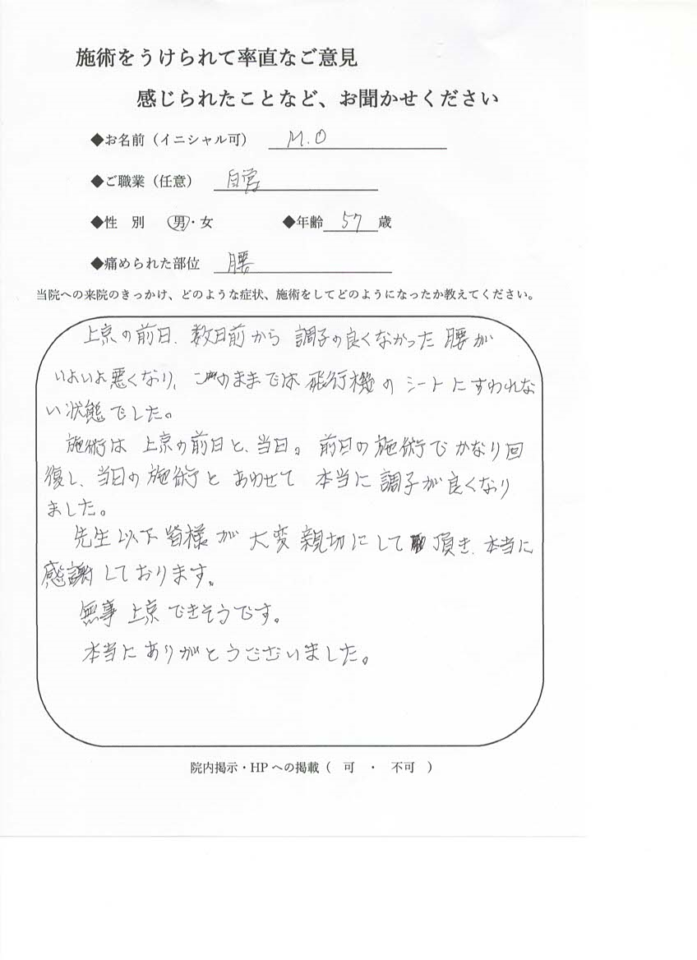 施術をうけられて率直なご意見
感じられたことなど、お聞かせください
◆お名前（イニシャル可） M.O
◆ご職業（任意） 自営
◆性　別　男・女　◆年齢 57 歳
◆痛められた部位 腰
当院への来院のきっかけ、どのような症状、施術をしてどのようになったか教えてください。
上京の前日、数日前から 調子の良くなかった 腰が
いよいよ悪くなり、このままでは 飛行機の シートにすわれな
い状態でした。
施術は 上京の前日と、当日。前日の施術でかなり回
復し、当日の施術と あわせて 本当に調子が良くなり
ました。
先生以下 皆様が 大変 親切にして 頂き、本当に
感謝しております。
無事 上京できそうです。
本当にありがとうございました。
院内掲示・HPへの掲載（　可　・　不可　）